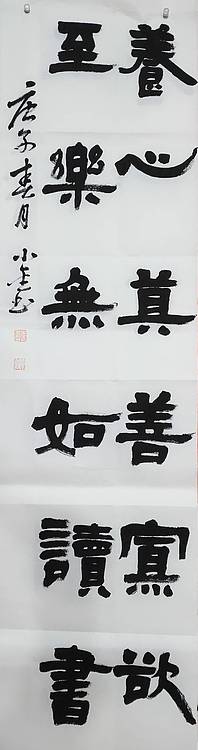 養心莫善寡欲
至樂無如讀書
庚子春月 小